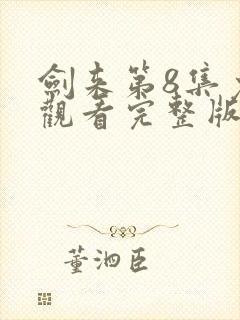 劍来第8集
觀看完整版
董泗臣